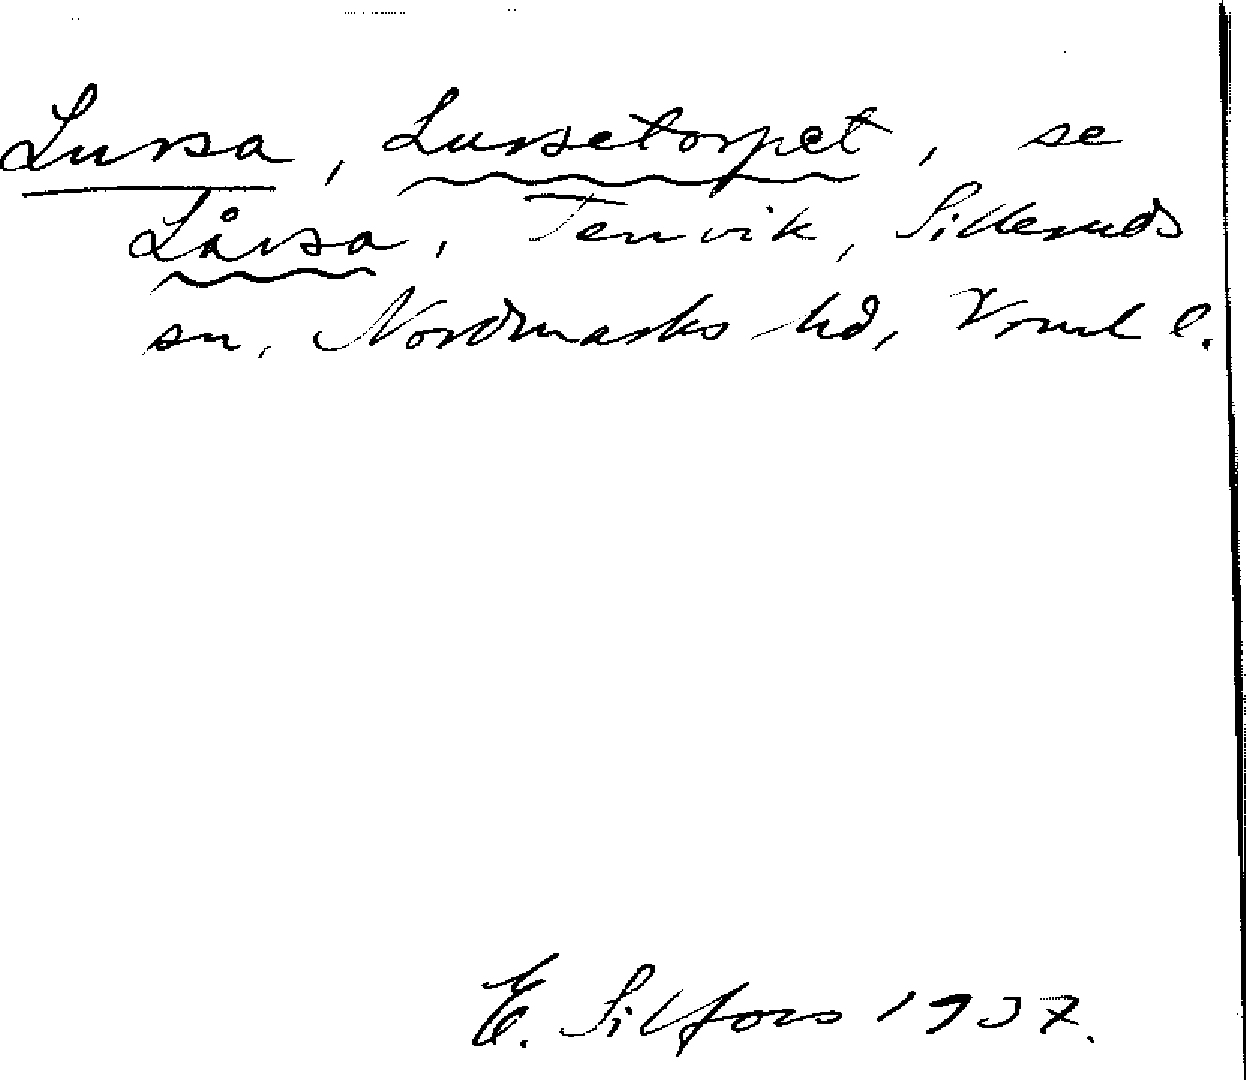 Lursa, Lursetorpet, se
Lårsa, Tenvik, Silleruds
sn, Nordmarks hd, Vrml l.
E. Silfors 1937.